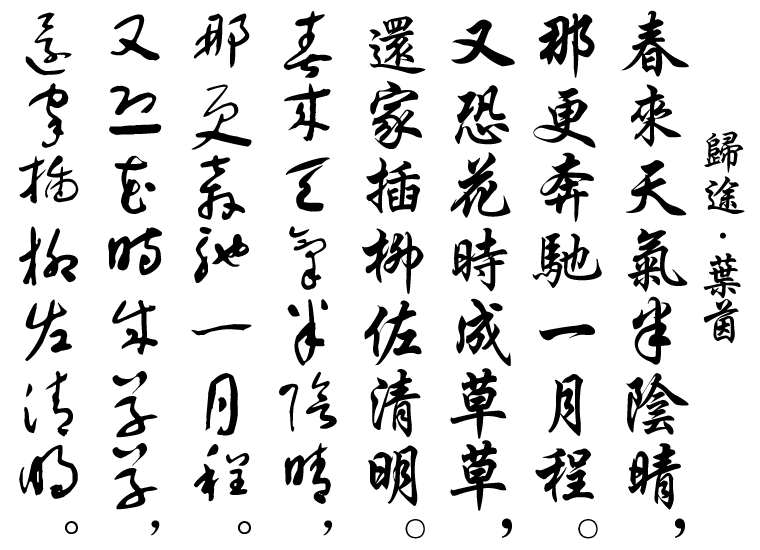 歸途·葉茵
春來天氣半陰晴，
那更奔馳一月程。
又恐花時成草草，
還家插柳佐清明。
春來天氣半陰晴，
那更奔馳一月程。
又恐花時成草草，
還家插柳佐清明。